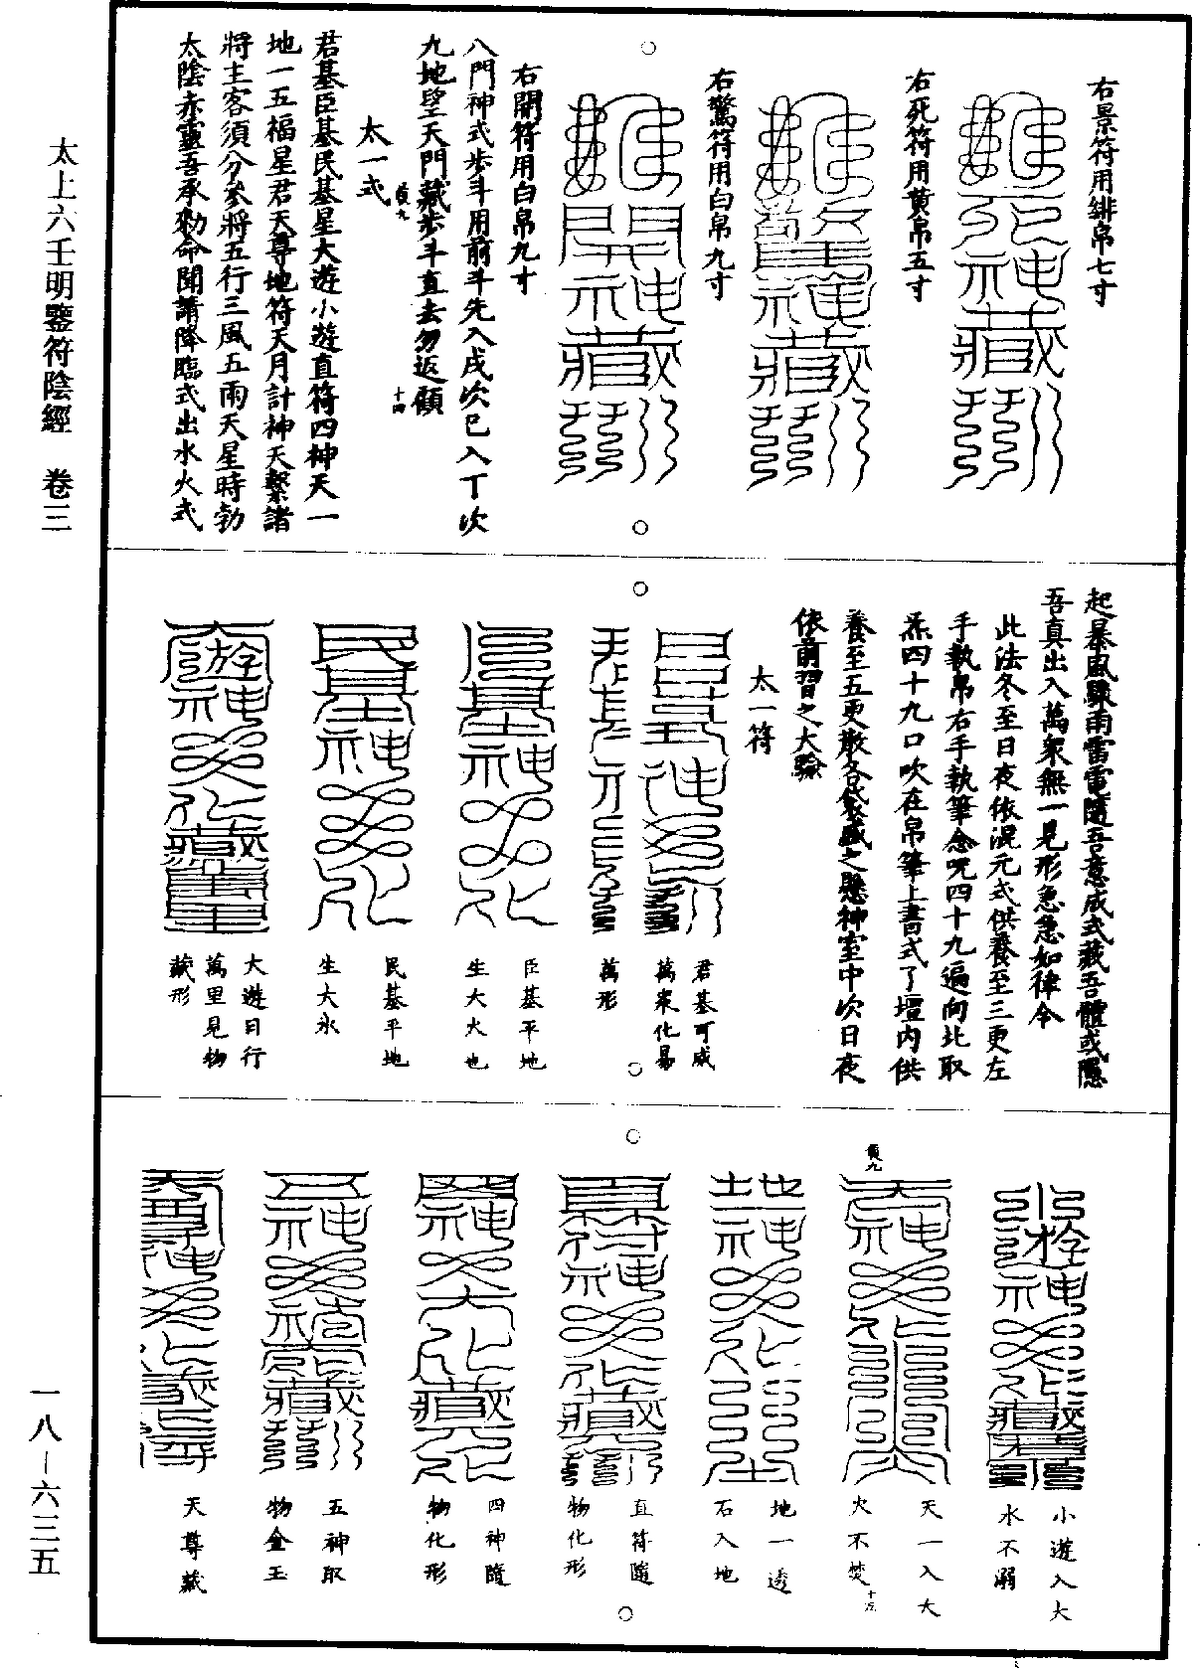 右景符用緋帛七寸
右死符用黄帛五寸
右驚符用白帛九寸
右開符用白帛九寸
八門神式步斗用前斗先入戌次巳入丁次
九地望天門藏步斗直去勿返顧
太一式
君基臣基民基星大遊小遊直符四神天一
地一五福星君天尊地符天月計神天繫諸
將主客須分參將五行三風五雨天星時勃
太陰赤靈吾承勑命聞請降臨式出水火式
起暴風驟雨雷電隨吾意成式藏吾體或隱
吾真出入萬衆無一見形急急如律令
此法冬至日夜依混元式供養至三更左
手執帛右手執筆念呪四十九遍向北取
炁四十九口吹在帛筆上書式了壇内供
養至五更散各袋盛之懸神室中次日夜
依前習之大驗
太一符
君基可威
萬衆化易
萬形
臣基平地
生大火也
民基平地
生大水
大遊日行
萬里見物
藏形
小遊入大
水不溺
天一入大
火不焚
地一透
石入地
直符隨
物化形
四神隨
物化形
五神取
物金玉
天尊藏
太上六壬明鑒符陰經　卷三
一八—六三五